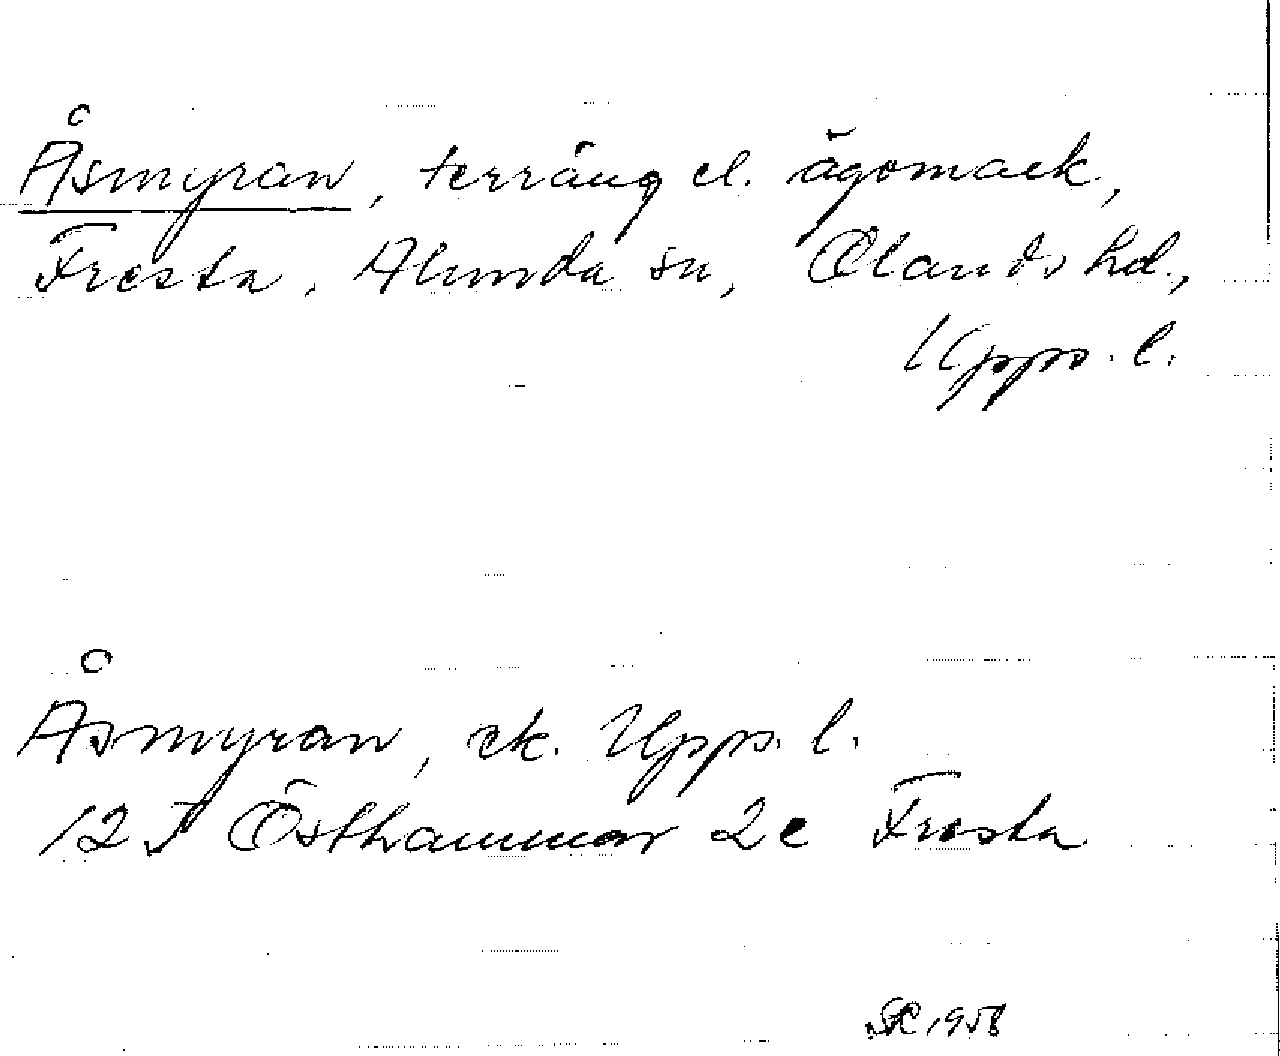 Åsmyran, terräng el. ägomark,
Fresta, Alunda sn, Olands hd.,
Upps. l.
Åsmyran, ek. Upps. l.
12I Östhammar 2e Fresta
1958